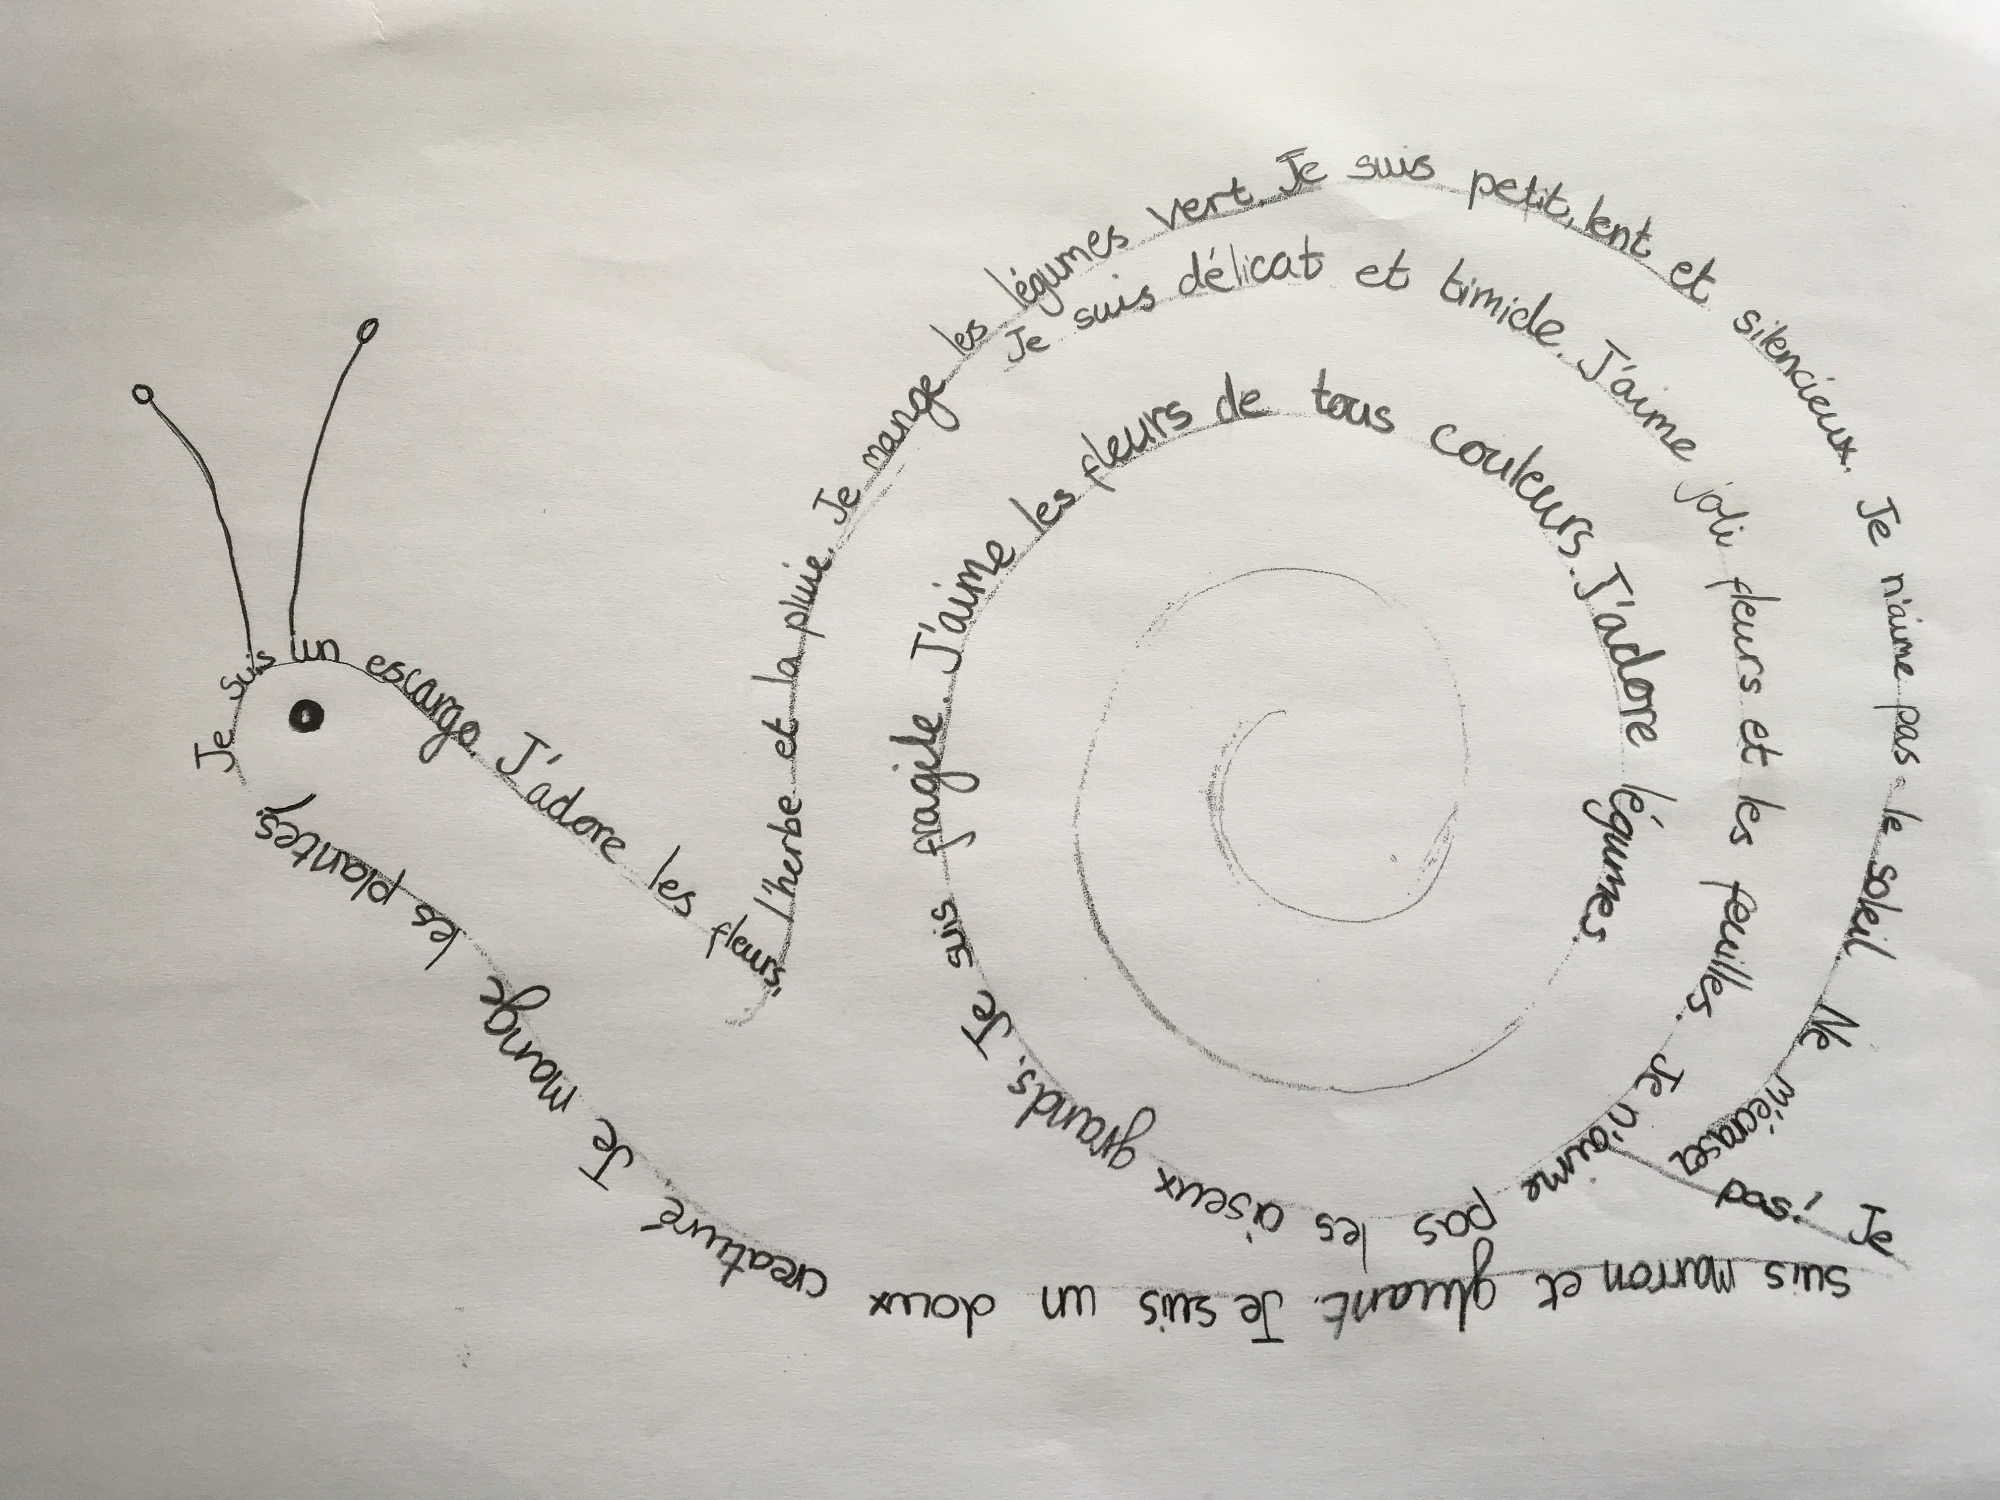 Je suis un escargo. J'adore les fleurs,
l'herbe et la pluie. Je mange les légumes vert. Je suis petit, lent et silencieux. Je n'aime pas le soleil. Ne m'écraser pas! Je
suis marron et gluant. Je suis un doux creature. Je mange les plantes.
Je suis délicat et timide. J'aime joli fleurs et les feuilles. Je n'aime pas les oiseux grands. Je suis fragile. J'aime les fleurs de tous couleurs. J'adore légumes